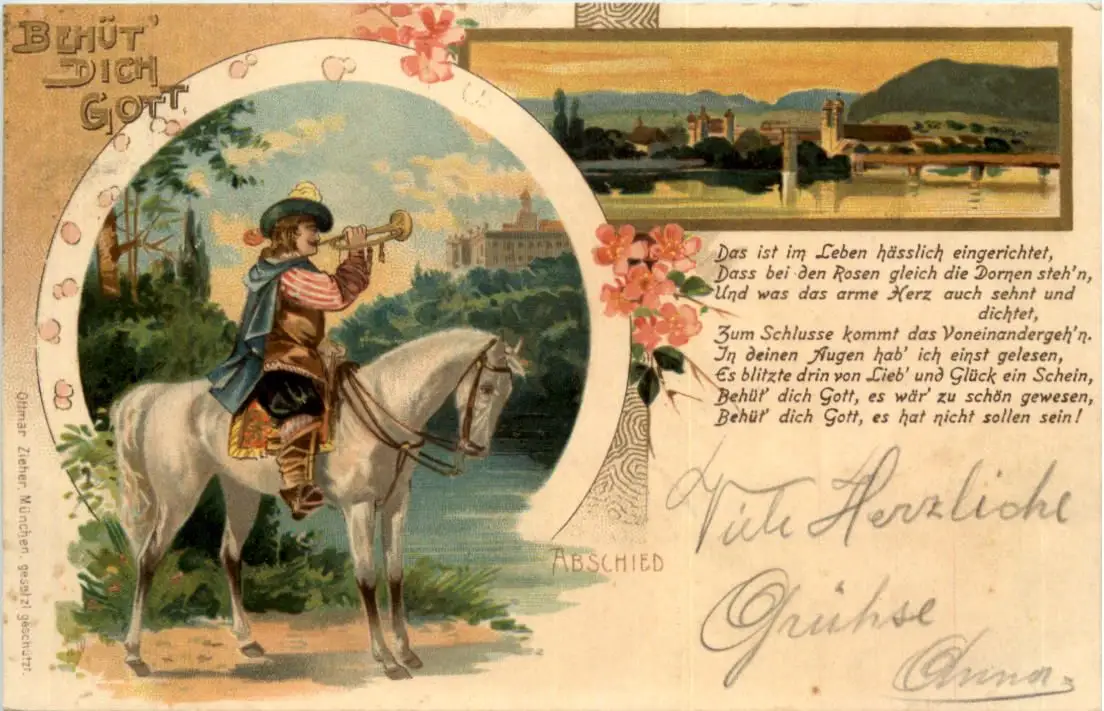 BEHÜT'
DICH
GOTT
Das ist im Leben hässlich eingerichtet,
Dass bei den Rosen gleich die Dornen steh'n,
Und was das arme Herz auch sehnt und
dichtet,
Zum Schlusse kommt das Voneinandergeh'n.
In deinen Augen hab' ich einst gelesen,
Es blitzte drin von Lieb' und Glück ein Schein,
Behüt' dich Gott, es wär' zu schön gewesen,
Behüt' dich Gott, es hat nicht sollen sein!
ABSCHIED
Viele Herzliche
Grühse
Anna
Ottmar Zieher, München. gesetzl geschützt.